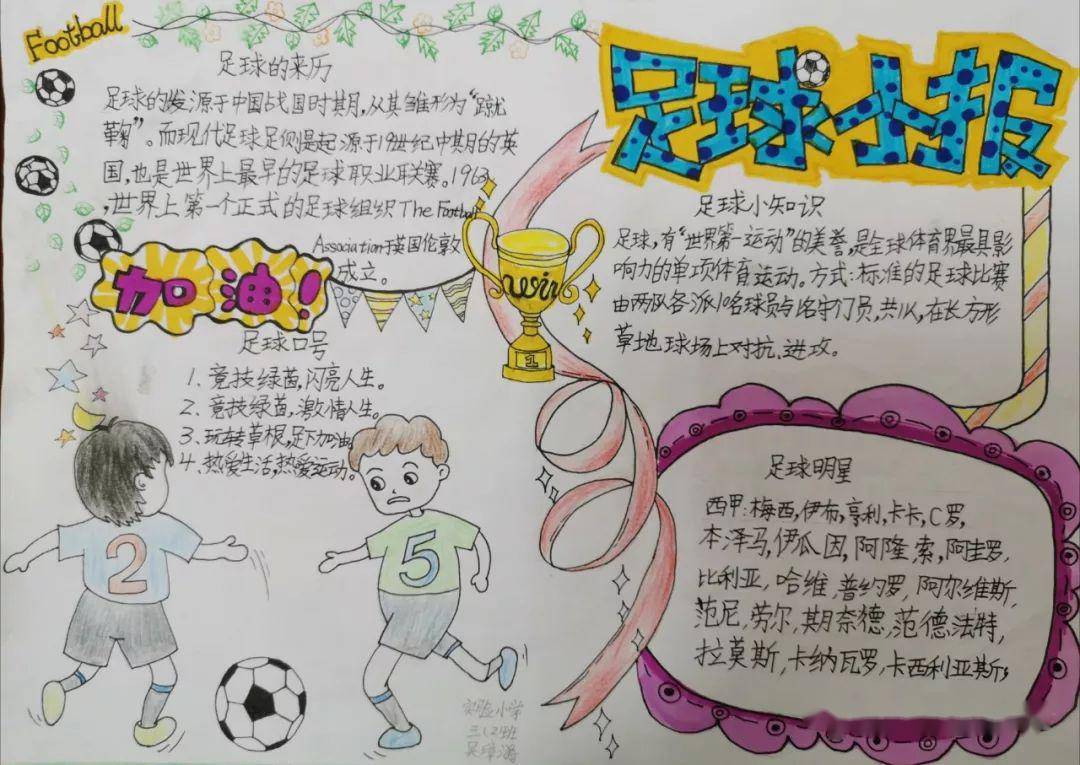 Football
足球小报
足球的来历
足球的发源于中国战国时期,从其雏形为“蹴
鞠”。而现代足球足则是起源于19世纪中期的英
国,也是世界上最早的足球职业联赛。1963
,世界上第一个正式的足球组织The Football
Association于英国伦敦
成立。
加油!
足球口号
1、竞技绿茵,闪亮人生。
2、竞技绿茵,激情人生。
3、玩转草根,足下加油。
4、热爱生活,热爱运动。
2
5
1
足球小知识
足球,有“世界第一运动”的美誉,是全球体育界最具影
响力的单项体育运动。方式:标准的足球比赛
由两队各派10名球员与1名守门员,共11人,在长方形
草地球场上对抗、进攻。
足球明星
西甲:梅西,伊布,亨利,卡卡,C罗,
本泽马,伊瓜因,阿隆索,阿圭罗,
比利亚,哈维,普约罗,阿尔维斯,
范尼,劳尔,期奈德,范德法特,
拉莫斯,卡纳瓦罗,卡西利亚斯,
实验小学
三(2)班